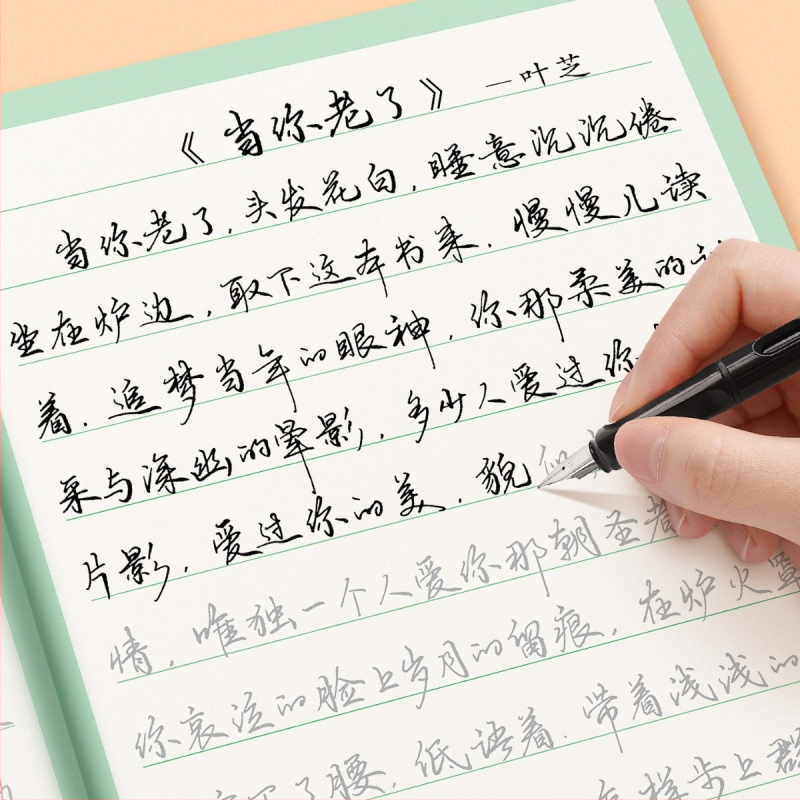 《当你老了》 —叶芝
当你老了，头发花白，睡意沉沉倦
坐在炉边，取下这本书来，慢慢几读
着，追梦当年的眼神，你那柔美的神
采与深幽的晕影，多少人爱过你
片影，爱过你的美，貌
情，唯独一个人爱你那朝圣者
你哀泣的脸上岁月的留痕，在炉火罩
腰，低语着，带着浅浅的
样步上群